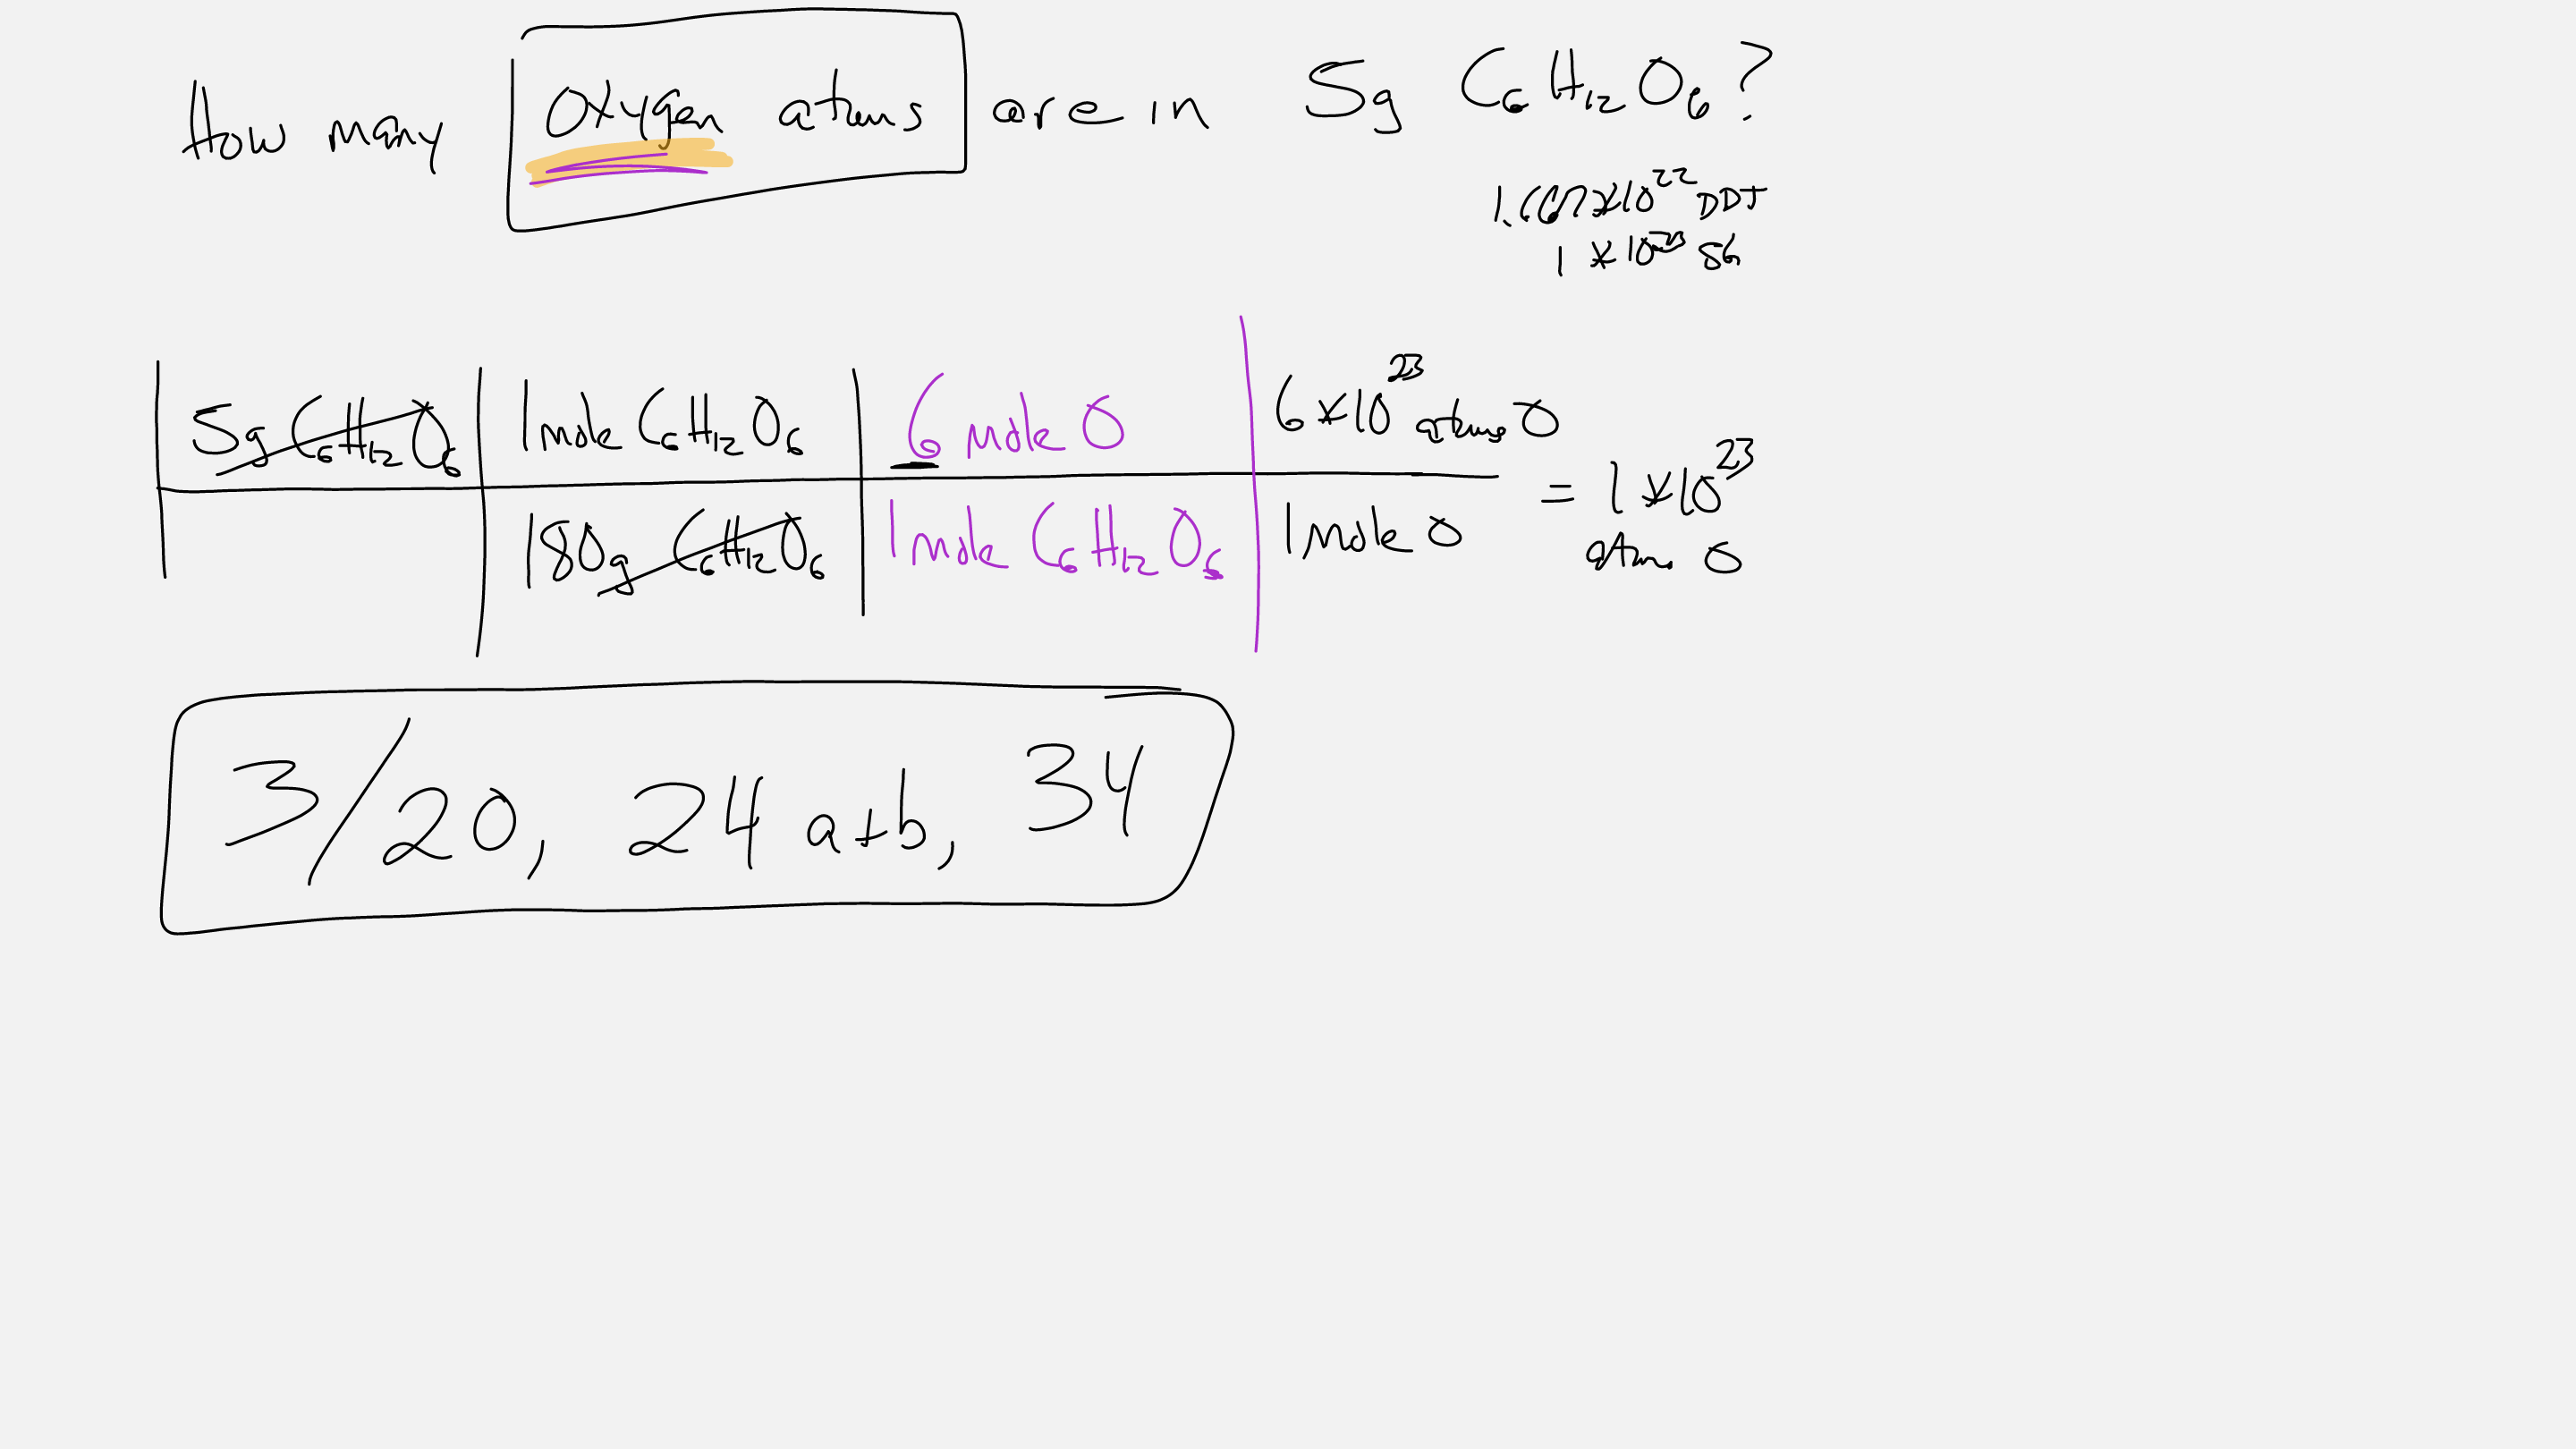 How many Oxygen atoms are in 5g C₆H₁₂O₆?
1.667*10²² DDT
1*10²³ SG
5g C₆H₁₂O₆ 1mole C₆H₁₂O₆ 6 mole O 6*10²³ atoms O
180g C₆H₁₂O₆ 1mole C₆H₁₂O₆ 1mole O = 1*10²³
atoms O
3/20, 24 a+b, 34